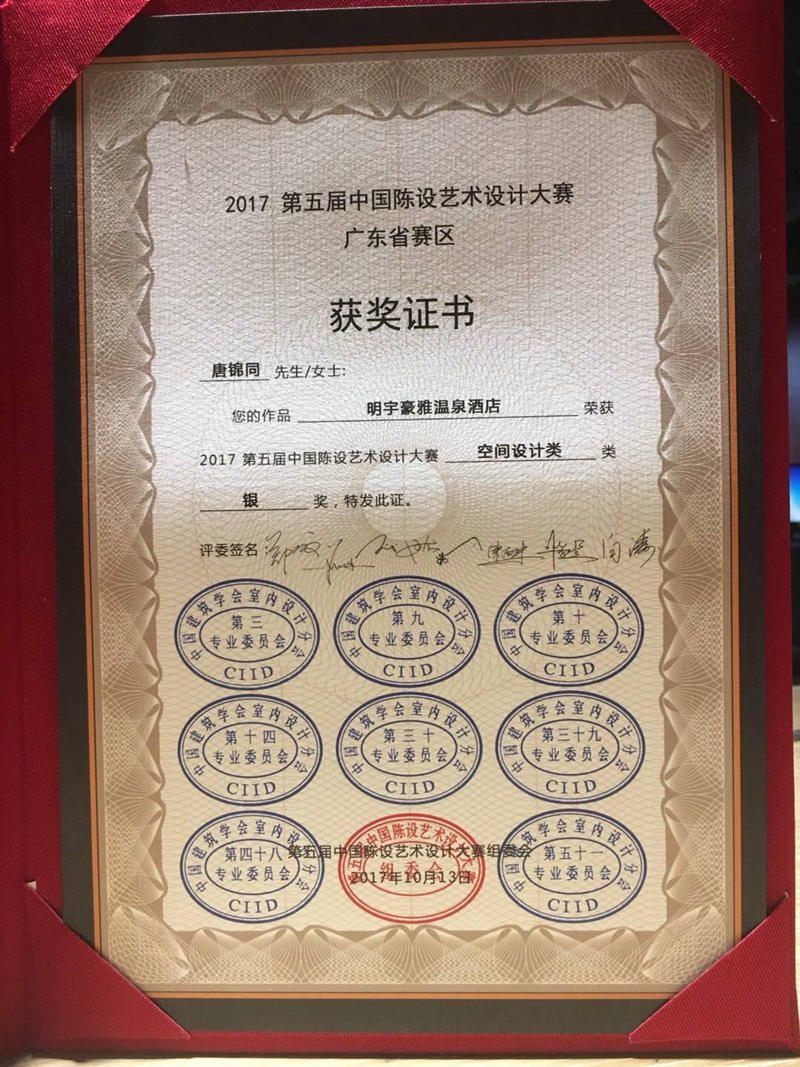 2017 第五届中国陈设艺术设计大赛
广东省赛区
获奖证书
唐锦同 先生/女士:
您的作品 明宇豪雅温泉酒店 荣获
2017 第五届中国陈设艺术设计大赛 空间设计类 类
银 奖，特发此证。
评委签名
中国建筑学会室内设计分会
第三
专业委员会
CIID
中国建筑学会室内设计分会
第九
专业委员会
CIID
中国建筑学会室内设计分会
第十
专业委员会
CIID
中国建筑学会室内设计分会
第十四
专业委员会
CIID
中国建筑学会室内设计分会
第三十
专业委员会
CIID
中国建筑学会室内设计分会
第三十九
专业委员会
CIID
中国建筑学会室内设计分会
第四十八
专业委员会
CIID
第五届中国陈设艺术设计大赛
组委会
第五届中国陈设艺术设计大赛组委会
2017年10月13日
中国建筑学会室内设计分会
第五十一
专业委员会
CIID